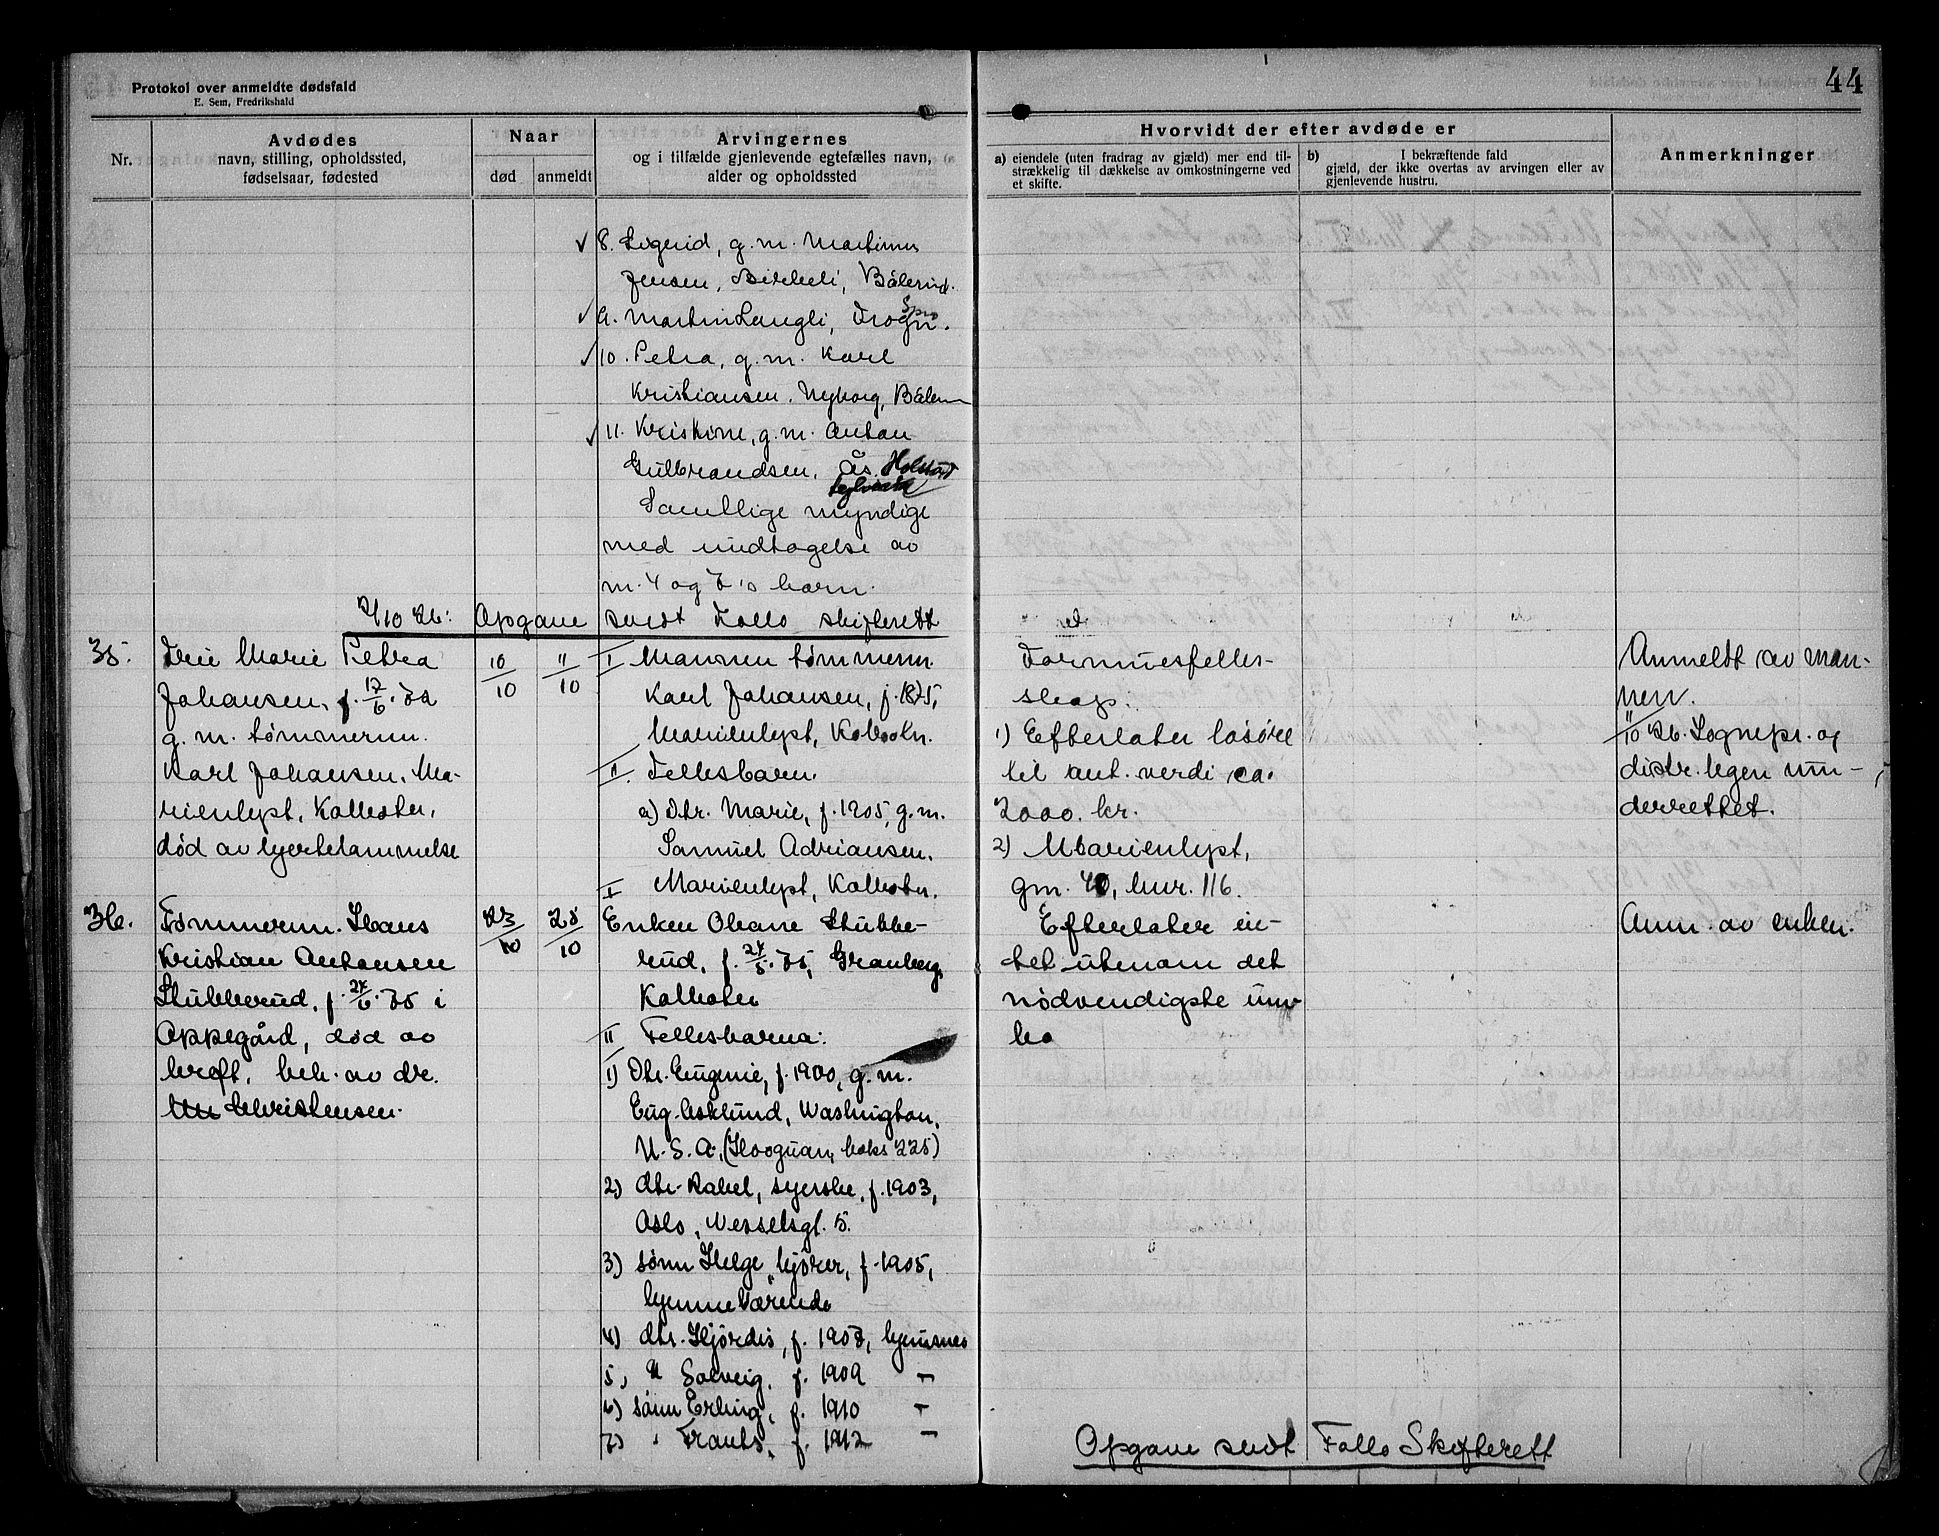 44
Protokol over anmeldte dødsfald
E. Sem, Fredrikshald
Nr.
Avdødes
navn, stilling, opholdssted,
fødselsaar, fødested
Naar
død
anmeldt
Arvingernes
og i tilfælde gjenlevende egtefælles navn,
alder og opholdssted
Hvorvidt der efter avdøde er
a) eiendele (uten fradrag av gjæld) mer end til-
strækkelig til dækkelse av omkostningerne ved
et skifte.
b) I bekræftende fald
gjæld, der ikke overtas av arvingen eller av
gjenlevende hustru.
Anmerkninger
8. g. m. Martinus
Jensen, Birkeli,
9. Martin Langli, Drogn.
10. Petra, g. m. Karl
Kristiansen, Nyborg,
11. Kristine, g. m. Anton
Gulbrandsen, Ås. Holstad
Samtlige myndige
med undtagelse av
nr. 4 og 7's barn.
Opgave sendt Follo skifterett
35.
Fru Marie Petra
Johansen, f. 17/6.72
g. m. tømmerm.
Karl Johansen, Ma-
rienlyst, Kolbotn,
død av hjertelammelse
10/10
11/10
I Mannen tømmerm.
Karl Johansen, f. 1875,
Marienlyst, Kolbotn.
II. Fellesbarn.
a) Dtr. Marie, f. 1905, g. m.
Samuel Adriansen,
Marienlyst, Kolbotn.
Formuesfelles-
skap.
1) Efterlater løsøre
til ant. verdi ca.
2000. kr.
2) Marienlyst,
gnr. 40, bnr. 116.
Anmeldt av man-
nen.
11/10 26. Sognepr. og
distr. legen un-
derrettet.
36.
Tømmerm. Hans
Kristian Antonsen
Stubberud, f. 24/6.75 i
Oppegård, død av
kreft, beh. av dr.
Christensen.
23/10
25/10
I
Enken Oleane Stubbe-
rud, f. 24/5.75, Granberg,
Kolbotn
II Fellesbarna:
1) Dtr. Eugenie, f. 1900, g. m.
Eug. Asklund, Washington,
U. S. A. (Hoquiam, boks 225)
2) dtr. Rakel, syerske, f. 1903,
Oslo, Wesselsgt. 15.
3) sønn Helge, kjører, f. 1905,
hjemmeværende
4) dtr. Hjørdis, f. 1907, hjemmev
5) " Solveig, f. 1909 –
6) sønn Erling, f. 1910 –
7) " Frants, f. 1912 –
Efterlater in-
tet utenom det
nødvendigste inn-
bo
Anm. av enken.
Opgave sendt Follo Skifterett